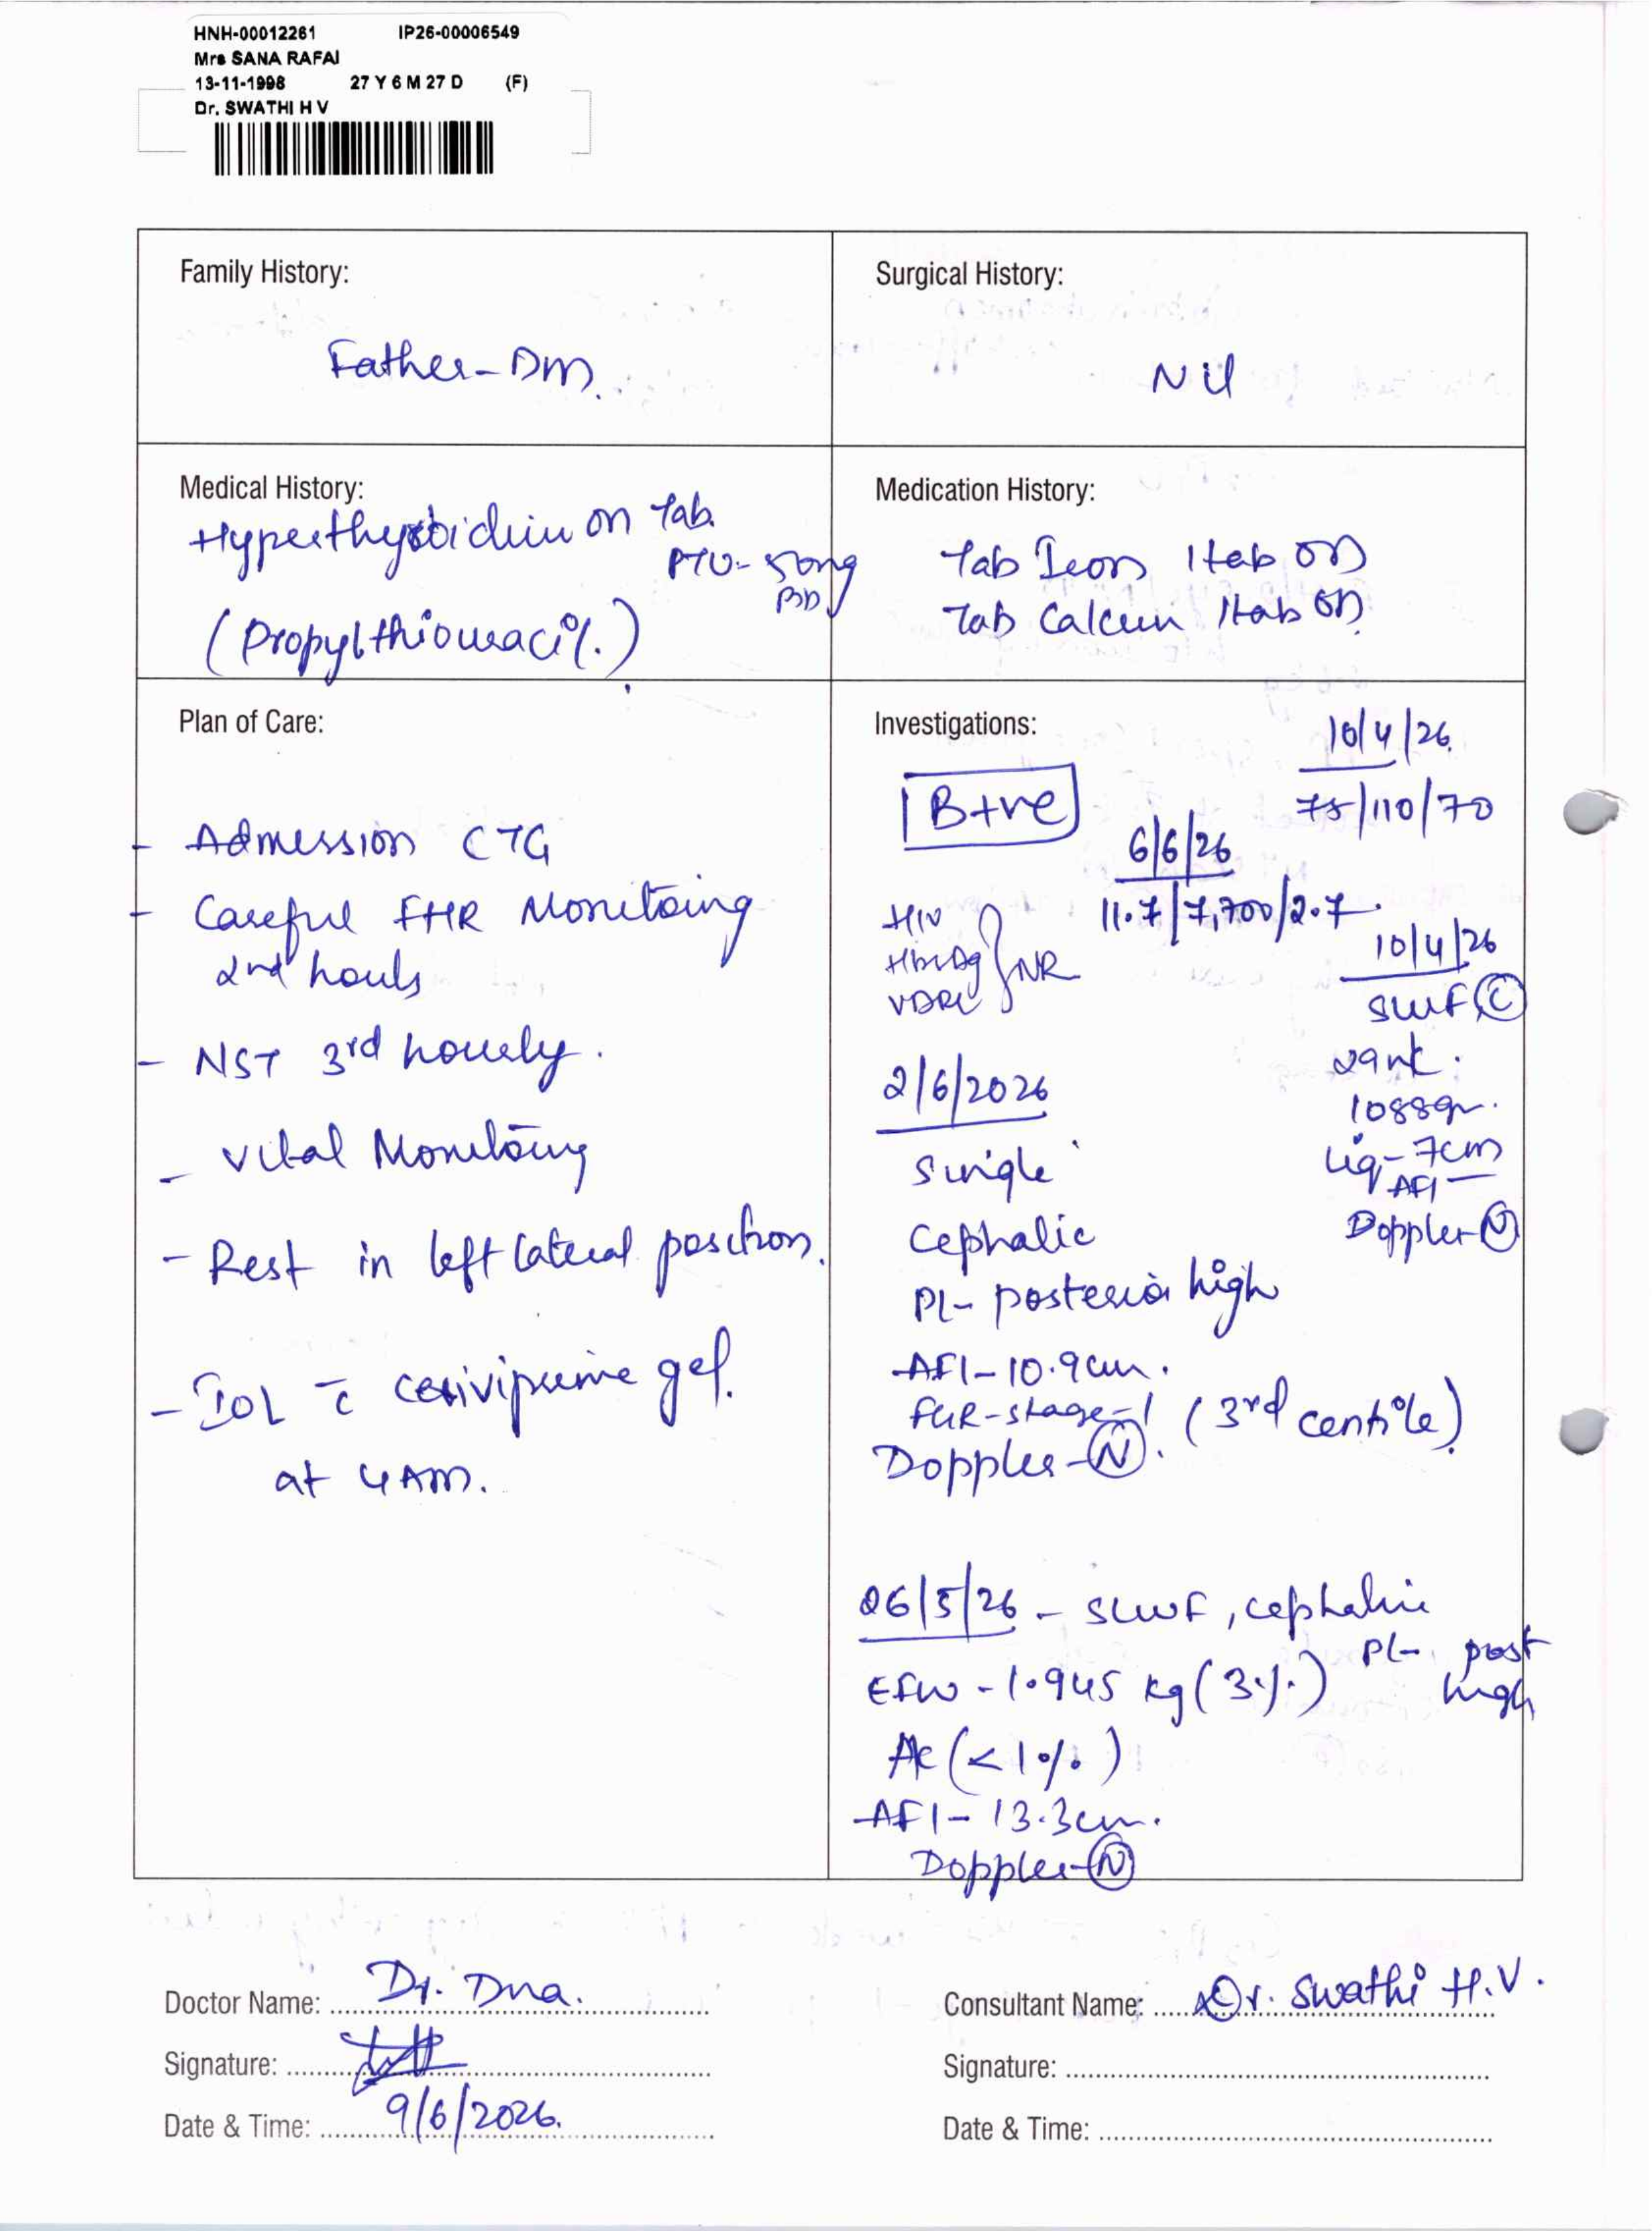 HNH-00012261 IP26-00006549
Mrs SANA RAFAI
13-11-1998 27 Y 6 M 27 D (F)
Dr. SWATHI H V
Family History:
Father - DM.
Surgical History:
Nil
Medical History:
Hyperthyroidism on Tab.
PTU - 50mg
BD
(Propylthiouracil.)
Medication History:
Tab Iron 1tab OD
Tab Calcium 1tab OD.
Plan of Care:
- Admission CTG
- Careful FHR Monitoring
2nd hourly
- NST 3rd hourly.
- Vital Monitoring
- Rest in left lateral position.
- IOL c̄ cerviprime gel.
at 4AM.
Investigations:
B+ve
10/4/26
75/110/70
6/6/26
11.7/7,700/2.7
HIV
HbsAg
VDRL
NR
10/4/26
SLIUF C
29wk.
1088gr.
Liq - 7cm
AFI
Doppler - N
2/6/2026
Single
Cephalic
Pl - posterior high
AFI - 10.9cm.
FGR - stage - 1 (3rd centile)
Doppler - N.
26/5/26 - SLIUF, cephalic
Pl - post
high
EFW - 1.945 kg (3%)
AC (<1%)
AFI - 13.3cm.
Doppler - N
Doctor Name: Dr.
Signature:
Date & Time: 9/6/2026.
Consultant Name: Dr. Swathi H.V.
Signature:
Date & Time: